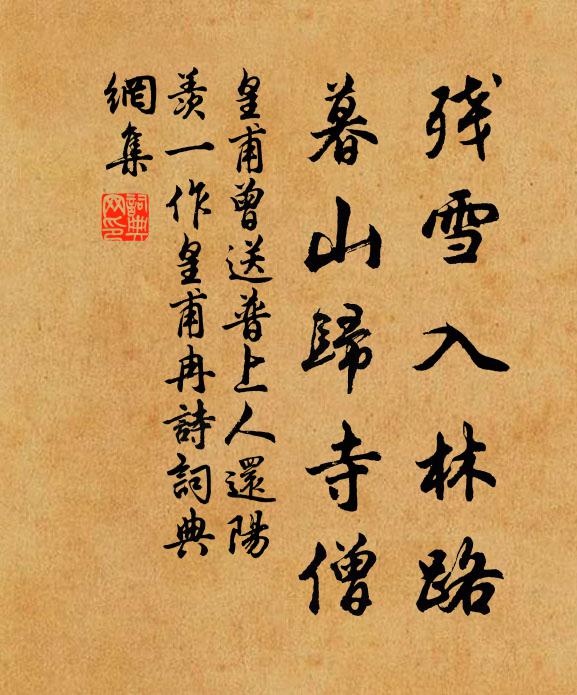 残雪入林路
暮山歸寺僧
皇甫曾送普上人還陽
羨一作皇甫冉詩詞典
網集
詞典
网印